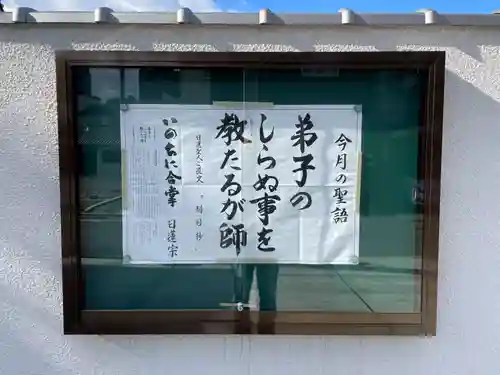 今月の聖語
弟子の
しらぬ事を
教たるが師
日蓮大聖人ご遺文
いのちに合掌
日蓮宗